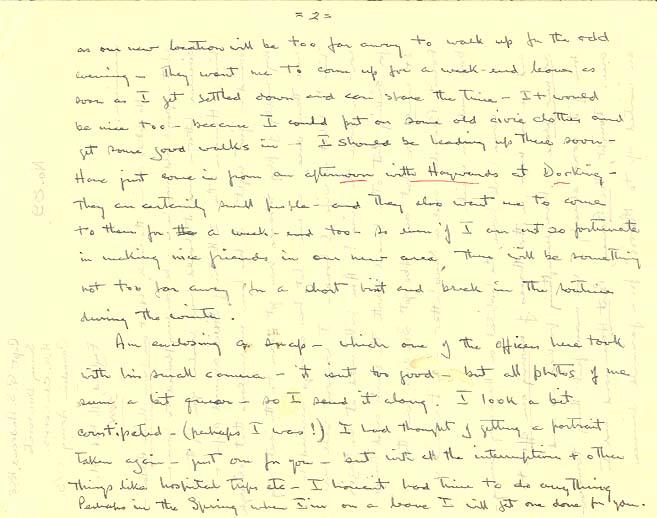 = 2 =
as our new location will be too far away to walk up for the odd
evening - They want me to come up for a week-end leave as
soon as I get settled down and can spare the time - It would
be nice too - because I could put on some old civie clothes and
get some good walks in - I should be heading up there soon -
Have just come in from an afternoon with Haywards at Dorking -
They are certainly swell people - and they also want me to come
to them for a week-end too - so even if I am not so fortunate
in making nice friends in our new area, there will be something
not too far away for a short visit and break in the routine
during the winter.
Am enclosing a snap - which one of the officers here took
with his small camera - it isn't too good - but all photos of me
seem a bit queer - so I send it along. I look a bit
constipated - (perhaps I was!) I had thought of getting a portrait
taken again - just one for you - but with all the interruptions + other
things like hospital trips etc - I haven't had time to do anything
Perhaps in the Spring when I'm on a leave I will get one done for you.
No. 29